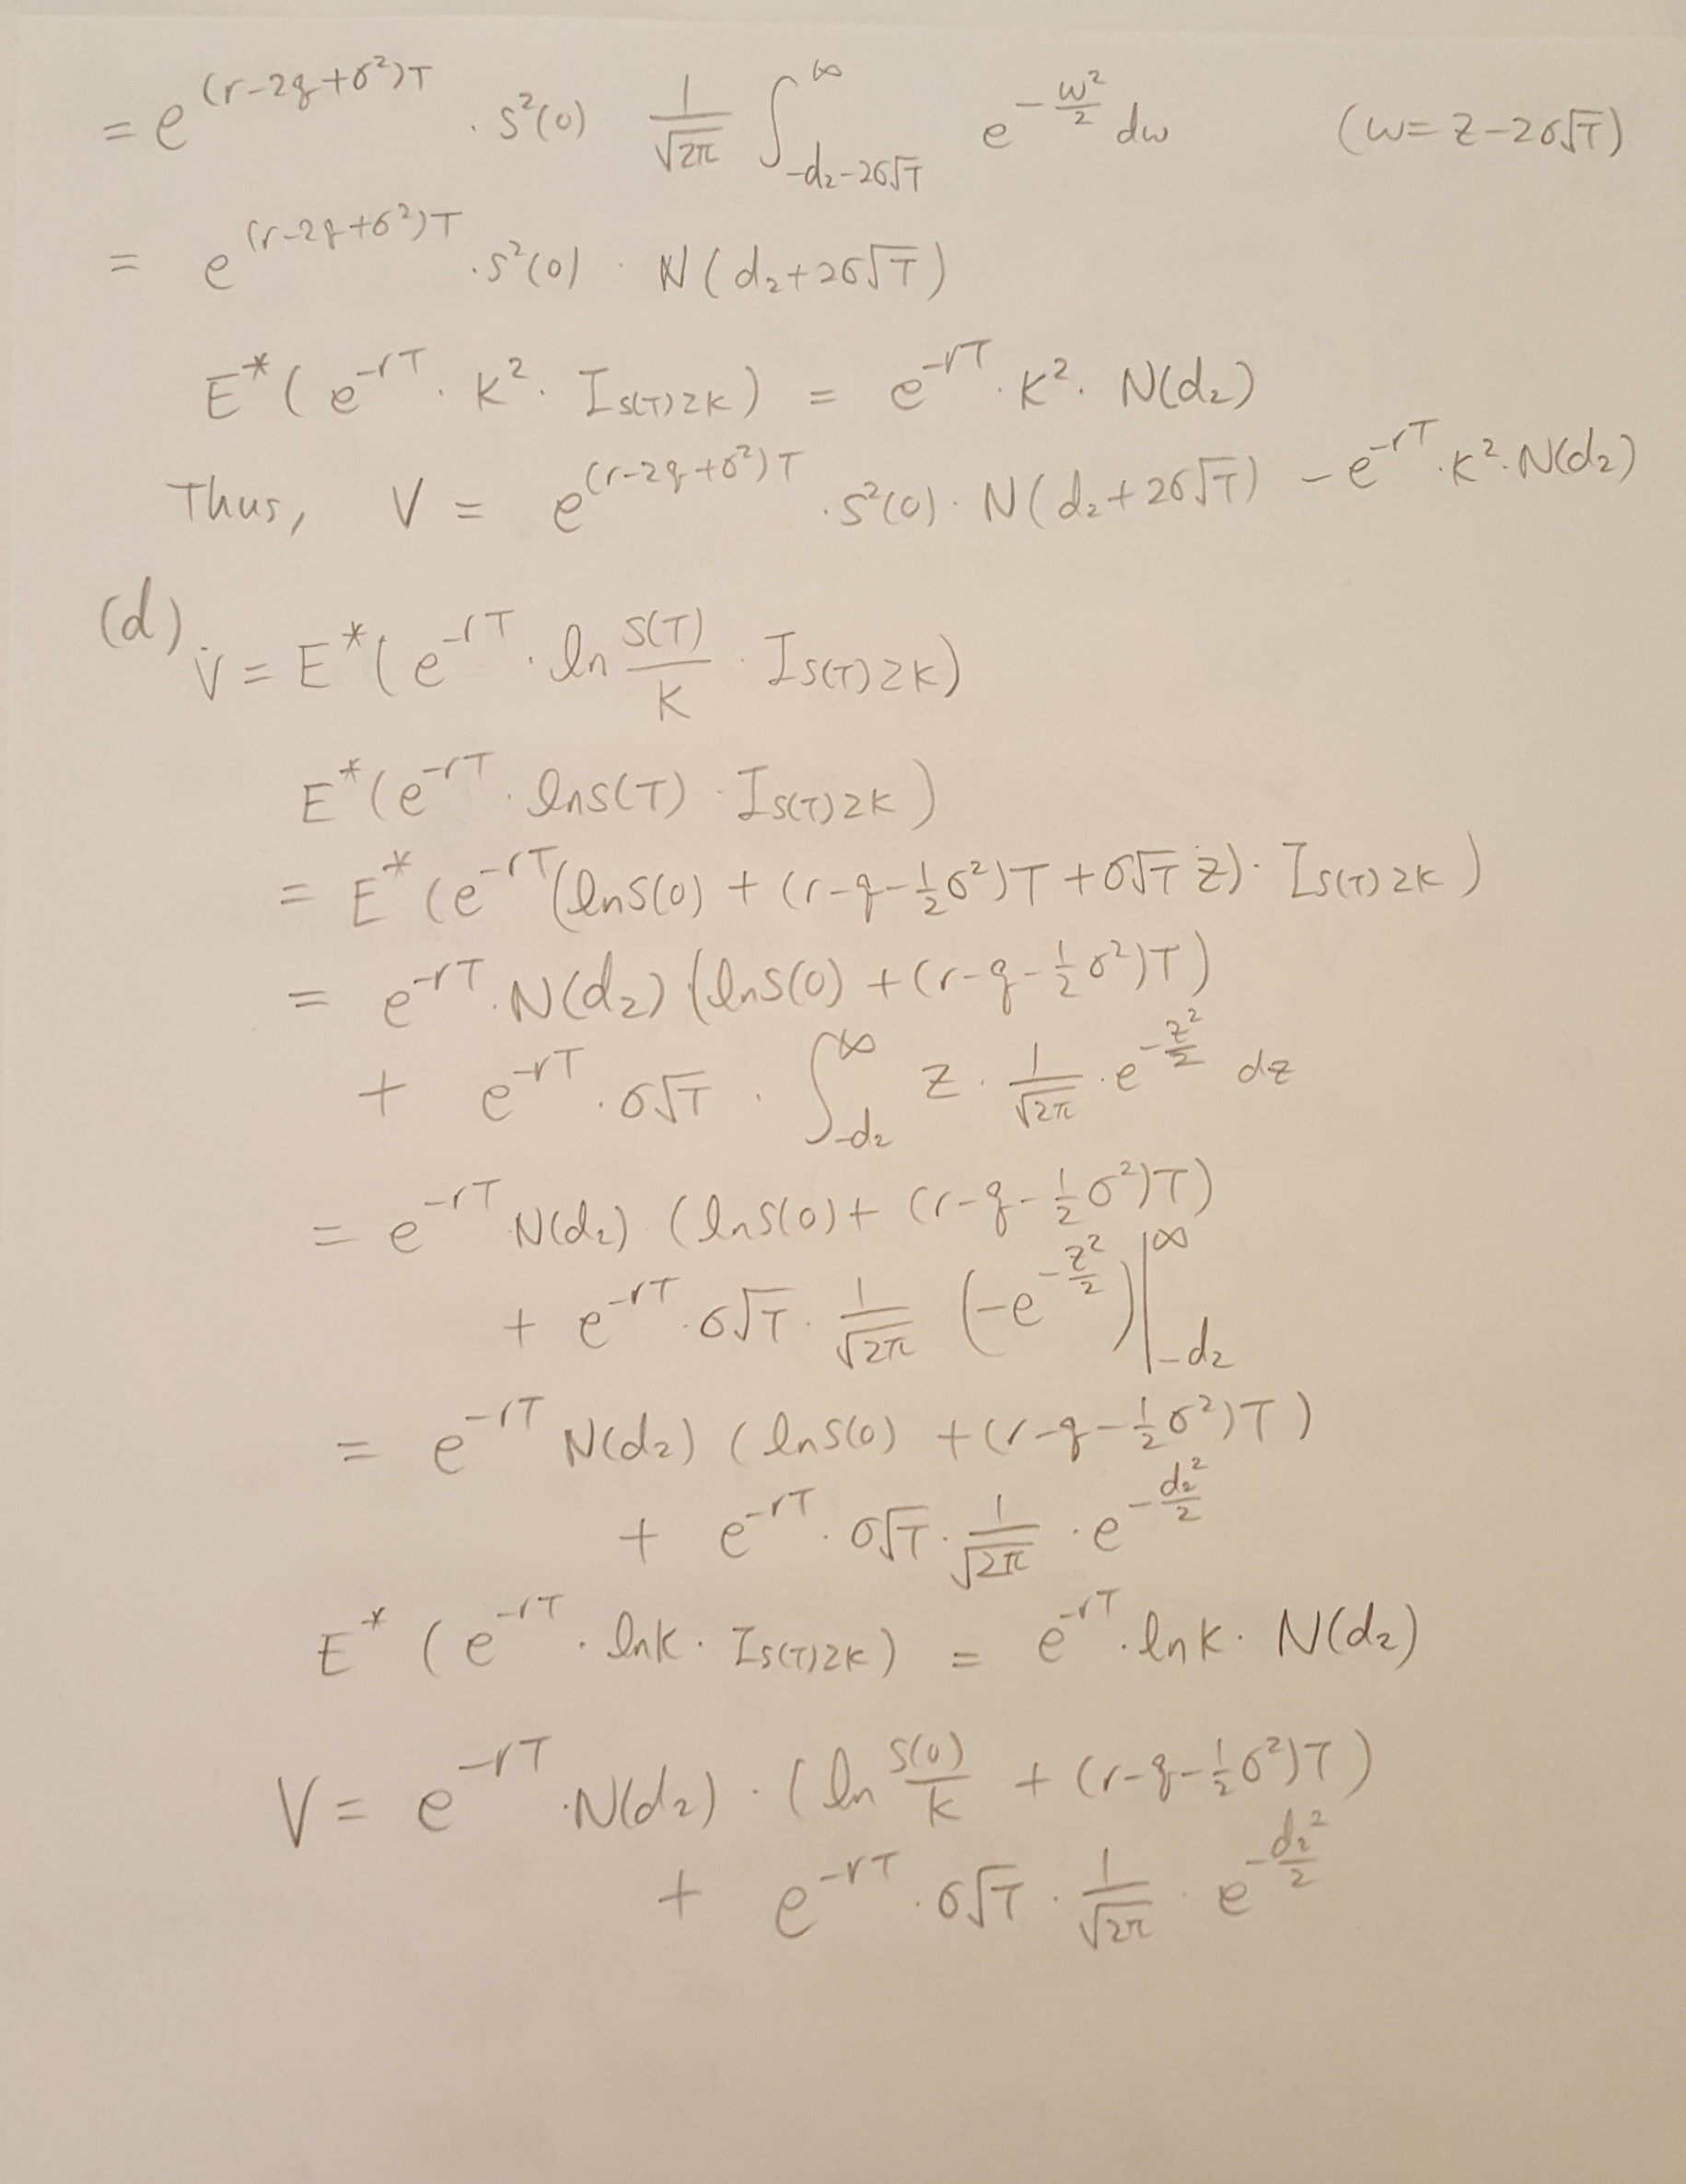 = e^{(r-2q+σ²)T} · S²(0) \frac{1}{\sqrt{2π}} ∫_{-d₂-2σ√T}^{∞} e^{-\frac{w²}{2}} dw (w = z-2σ√T)
= e^{(r-2q+σ²)T} · S²(0) · N(d₂+2σ√T)
E*(e^{-rT} · K² · I_{S(T)≥K}) = e^{-rT} · K² · N(d₂)
Thus, V = e^{(r-2q+σ²)T} · S²(0) · N(d₂+2σ√T) - e^{-rT} · K² · N(d₂)
(d) V = E*(e^{-rT} · ln \frac{S(T)}{K} · I_{S(T)≥K})
E*(e^{-rT} · lnS(T) · I_{S(T)≥K})
= E*(e^{-rT}(lnS(0) + (r-q-\frac{1}{2}σ²)T + σ√T z) · I_{S(T)≥K})
= e^{-rT} · N(d₂) (lnS(0) + (r-q-\frac{1}{2}σ²)T)
+ e^{-rT} · σ√T · ∫_{-d₂}^{∞} z · \frac{1}{\sqrt{2π}} · e^{-\frac{z²}{2}} dz
= e^{-rT} N(d₂) · (lnS(0) + (r-q-\frac{1}{2}σ²)T)
+ e^{-rT} · σ√T · \frac{1}{\sqrt{2π}} (-e^{-\frac{z²}{2}})|_{-d₂}^{∞}
= e^{-rT} N(d₂) (lnS(0) + (r-q-\frac{1}{2}σ²)T)
+ e^{-rT} · σ√T · \frac{1}{\sqrt{2π}} · e^{-\frac{d₂²}{2}}
E*(e^{-rT} · lnK · I_{S(T)≥K}) = e^{-rT} · lnK · N(d₂)
V = e^{-rT} · N(d₂) · (ln \frac{S(0)}{K} + (r-q-\frac{1}{2}σ²)T)
+ e^{-rT} · σ√T · \frac{1}{\sqrt{2π}} · e^{-\frac{d₂²}{2}}